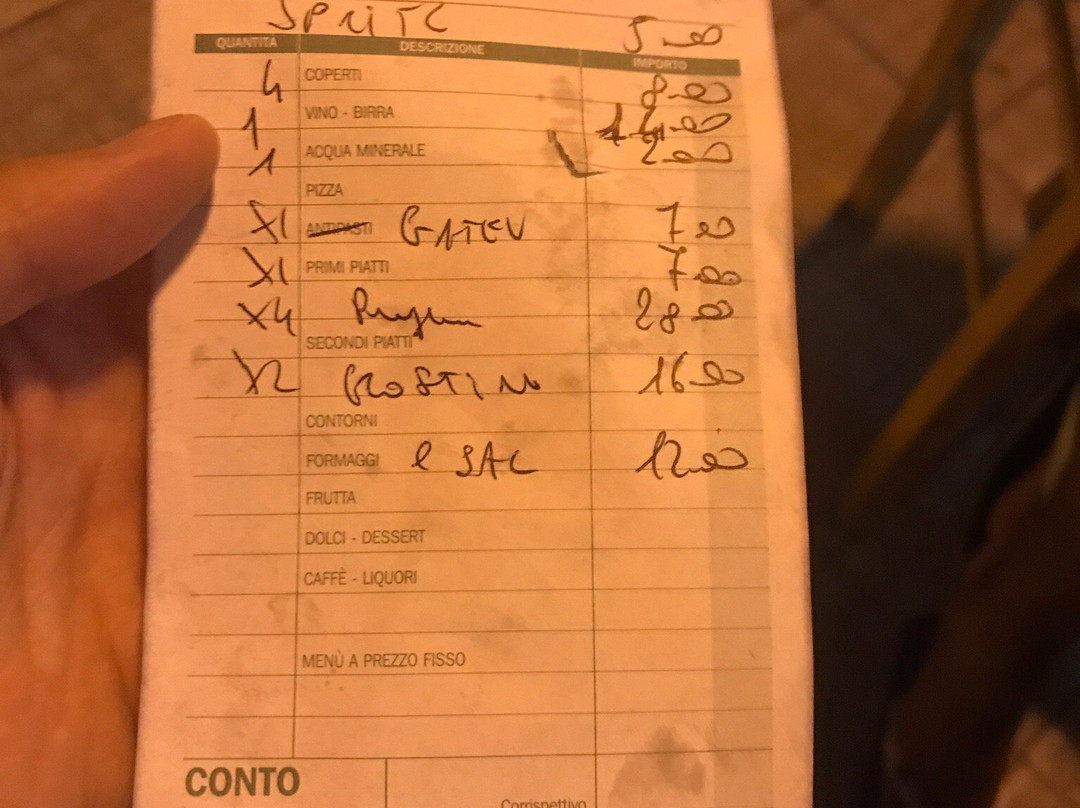 SPRITZ 5,00
QUANTITÀ DESCRIZIONE IMPORTO
4 COPERTI 8,00
1 VINO - BIRRA 14,00
1 ACQUA MINERALE 2,00
PIZZA
X1 ANTIPASTI GATEU 7,00
X1 PRIMI PIATTI 7,00
X4 28,00
SECONDI PIATTI
X2 CROSTINO 16,00
CONTORNI
FORMAGGI e SAL 12,00
FRUTTA
DOLCI - DESSERT
CAFFÈ - LIQUORI
MENÙ A PREZZO FISSO
CONTO
Corrispettivo